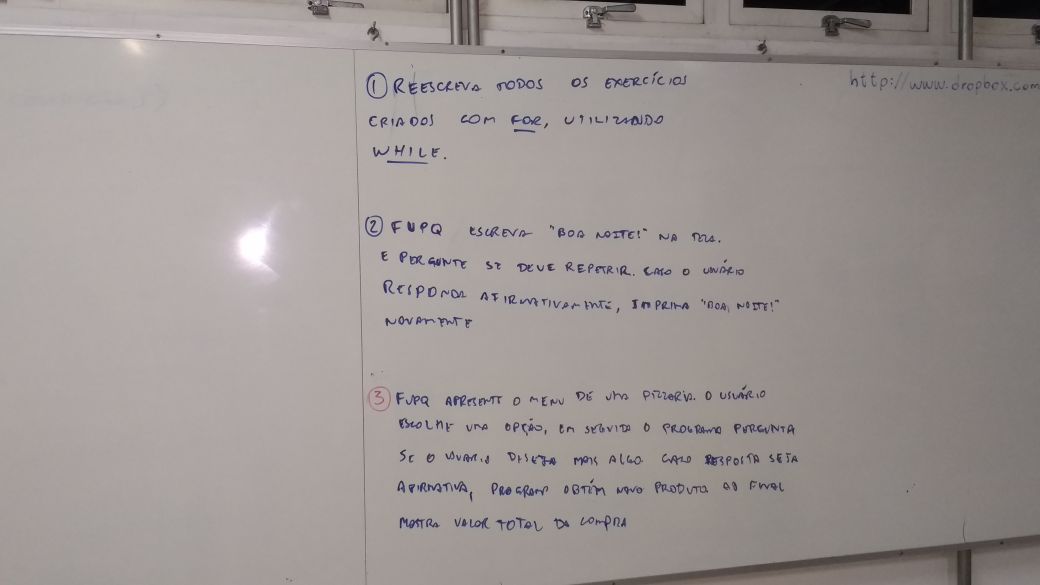 ① REESCREVA TODOS OS EXERCÍCIOS
CRIADOS COM FOR, UTILIZANDO
WHILE.
http://www.dropbox.com
② FUPQ ESCREVA "BOA NOITE!" NA TELA.
E PERGUNTE SE DEVE REPETIR. CASO O USUÁRIO
RESPONDA AFIRMATIVAMENTE, IMPRIMA "BOA NOITE!"
NOVAMENTE
③ FUPQ APRESENTE O MENU DE UMA PIZZARIA. O USUÁRIO
ESCOLHE UMA OPÇÃO, EM SEGUIDA O PROGRAMA PERGUNTA
SE O USUÁRIO DESEJA MAIS ALGO. CASO RESPOSTA SEJA
AFIRMATIVA, PROGRAMA OBTÉM NOVO PRODUTO. AO FINAL
MOSTRA VALOR TOTAL DA COMPRA